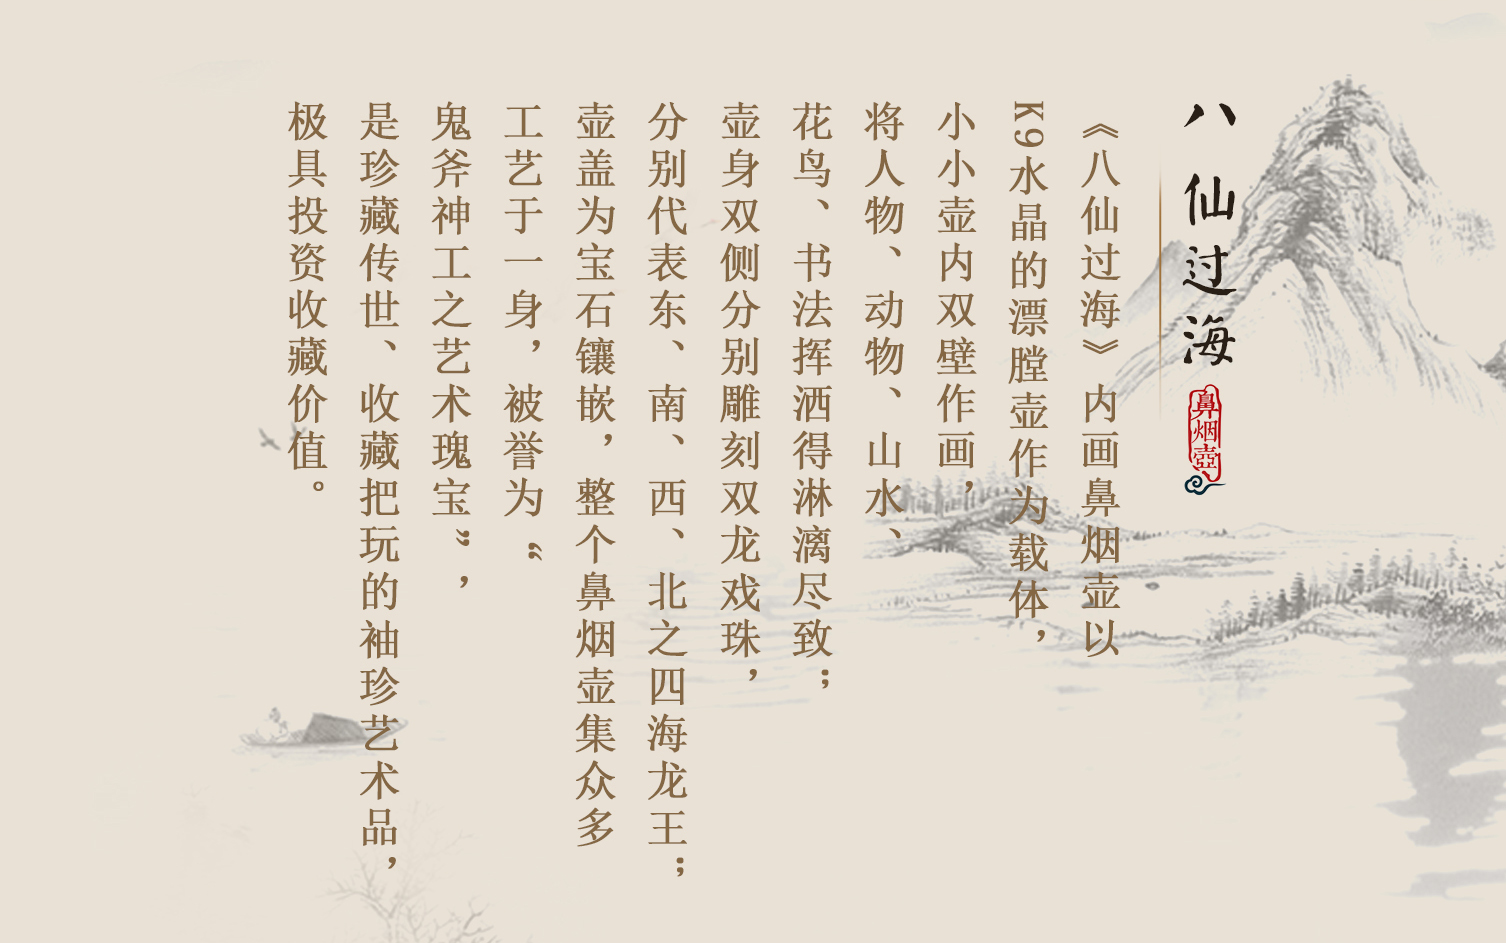 八仙过海
鼻烟壶
《八仙过海》内画鼻烟壶以
K9水晶的漂膛壶作为载体，
小小壶内双壁作画，
将人物、动物、山水、
花鸟、书法挥洒得淋漓尽致；
壶身双侧分别雕刻双龙戏珠，
分别代表东、南、西、北之四海龙王；
壶盖为宝石镶嵌，整个鼻烟壶集众多
工艺于一身，被誉为“
鬼斧神工之艺术瑰宝”，
是珍藏传世、收藏把玩的袖珍艺术品，
极具投资收藏价值。